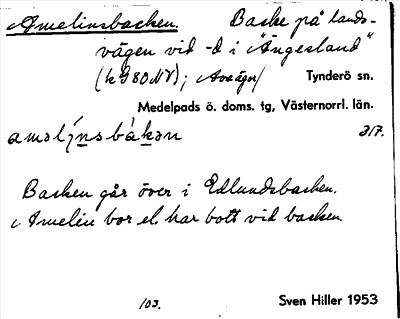 Amelinsbacken. Backe på lands-
vägen vid -d i "Ängesland"
(k 980 NV); Avsäger/ Tynderö sn.
Medelpads ö. doms. tg, Västernorrl. län.
317.
Backen går över i Edlundsbacken.
Amelin bor el. har bott vid backen.
103. Sven Hiller 1953